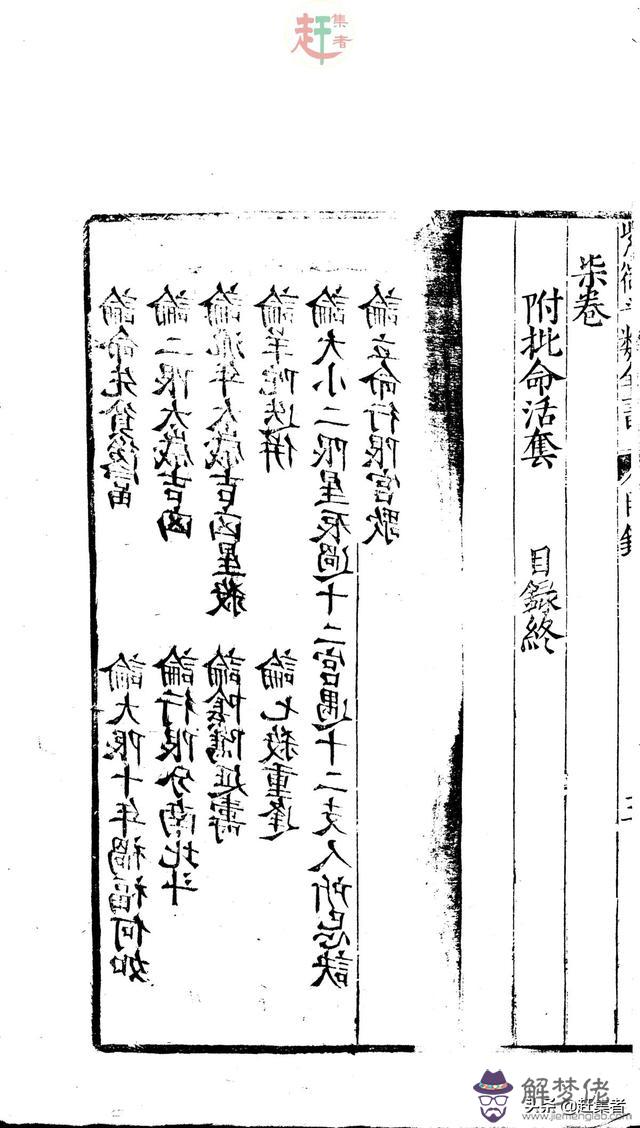 柒卷
附批命活套 目録終
論命先貧後富 論大限十年禍福何如
論二限太歲吉凶 論行限分南北斗
論流年太歲吉凶星殺 論陰騭延壽
論羊陀迭併 論七殺重逢
論大小二限星辰過十二宮遇十二支人所忌訣
論立命行限宮歌
赶集者
解梦佬
www.jiemenglab.com
头条@赶集者